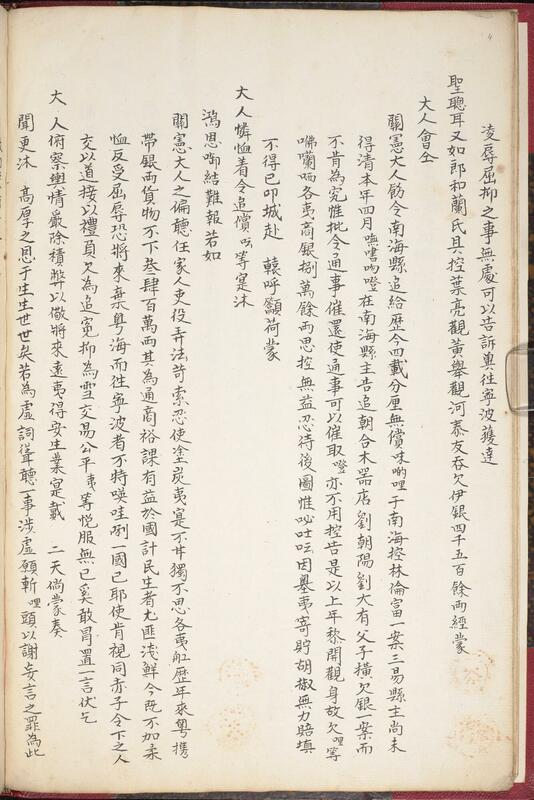 凌辱屈抑之事無處可以告訴與往寧波獲達
聖聰耳又如郎和蘭氏具控葉亮觀黃舉觀河泰友吞欠伊銀四千五百餘兩經蒙
大人會仝
關憲大人飭令南海縣追給歷今四載分厘無償味啲哩于南海控林倫富一案三易縣主尚未
得清本年四月嘸吻噔在南海縣主告追朝合木器店劉朝陽劉大有父子橫欠銀一案而
不肯為究惟批令通事催還使通事可以催取噔亦不用控告是以上年黎開觀身故欠哩等
㗶囒哂各夷商銀捌萬餘兩思控無益忍待後圖惟咇吐呍因墨夷寄貯胡椒無力賠填
不得已叩城赴 轅呼籲荷蒙
大人憐恤着令追償哆等寔沐
鴻恩啣結難報若如
關憲大人之偏聽任家人吏役弄法苛索忍使塗炭夷寔不甘獨不思各夷舡歷年來粵攜
帶銀兩貨物不下叁肆百萬兩其為通商裕課有益於國計民生者尤匪淺鮮今既不加柔
恤反受屈辱恐將來棄粵海而往寧波者不特㖮咭唎一國已耶使肯視同赤子令下之人
交以道接以禮負欠為追寃抑為雪交易公平夷等悅服無已奚敢冒置一言伏乞
大人俯察輿情嚴除積弊以儆將來遠夷得安生業寔戴 二天倘蒙奏
聞更沐 高厚之恩于生生世世矣若為虛詞聳聽一事涉虛願斬哩頭以謝妄言之罪為此